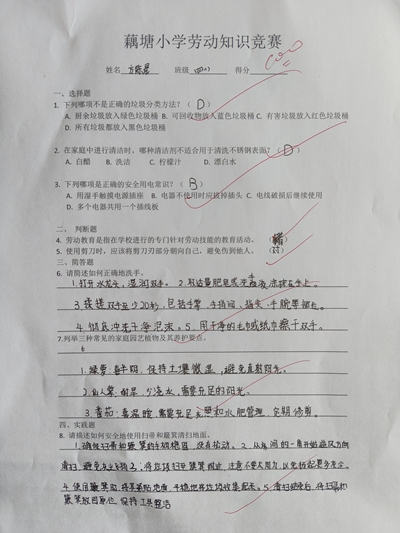 藕塘小学劳动知识竞赛
姓名 班级 四(1) 得分
一、选择题
1. 下列哪项不是正确的垃圾分类方法？（ D ）
A. 厨余垃圾放入绿色垃圾桶 B. 可回收物放入蓝色垃圾桶 C. 有害垃圾放入红色垃圾桶
D. 所有垃圾都放入黑色垃圾桶
2. 在家庭中进行清洁时，哪种清洁剂不适合用于清洗不锈钢表面？（ D ）
A. 白醋 B. 洗洁 C. 柠檬汁 D. 漂白水
3. 下列哪项是正确的安全用电常识？（ B ）
A. 用湿手触摸电源插座 B. 电器不使用时应拔掉插头 C. 电线破损后继续使用
D. 多个电器共用一个插线板
二、 判断题
4. 劳动教育是指在学校进行的专门针对劳动技能的教育活动。（错）
5. 使用剪刀时，应该将剪刀刃部分朝向自己，避免伤到他人。（对）
三、简答题
6. 请简述如何正确地洗手。
1. 打开水龙头，湿润双手。2. 取适量肥皂或洗手液涂抹在手上。
3. 揉搓双手至少20秒，包括手掌、手背、指尖、手腕等部位。
4. 彻底冲洗干净泡沫。5. 用干净的毛巾或纸巾擦干双手。
7.列举三种常见的家庭园艺植物及其养护要点。
1. 绿萝：喜半阴，保持土壤微湿，避免直射阳光。
2. 仙人掌：耐旱，少浇水，需要充足的阳光。
3. 番茄：喜温暖，需要充足光照和水肥管理，定期修剪。
四、实践题
8. 请描述如何安全地使用扫帚和簸箕清扫地面。
1. 确保扫帚和簸箕的手柄稳固，没有松动。2. 从房间的一角开始逆风方向
清扫，避免灰尘飞扬。3. 将垃圾扫至簸箕附近，注意不要太用力，以免扬起更多灰尘。
4. 使用簸箕时，将其紧贴地面，平稳地将垃圾收集起来。5. 清扫结束后，将扫帚和
簸箕放回原位，保持工具整洁